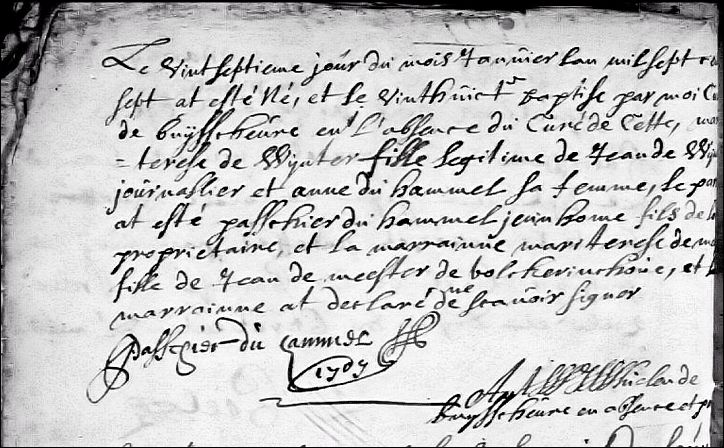 Le vintseptieme jour du mois Januier lan mil sept c
sept at esté Né, et le vinthuict baptise par moi Cu
de buysscheure en l'absence du Curé de Cette, mar
= terese de Wynter fille legitime de Jean de Wy
journallier et anne du hammel sa femme, le par
at esté passchier du hammel jeun home fils de
proprietaire, et la marrainne mari terese de me
fille de Jean de meester de bolckerinckove, et
marrainne at declaré ne scauoir signer
passchier du hammel
1707
buysscheure en absence et